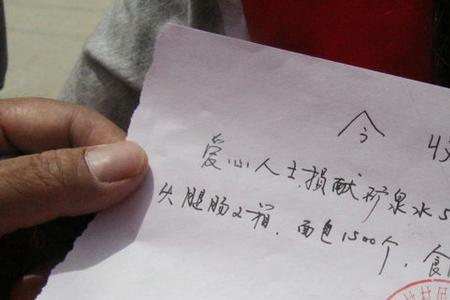 今
爱心人士捐献矿泉水5
火腿肠2箱.面包1500个,食